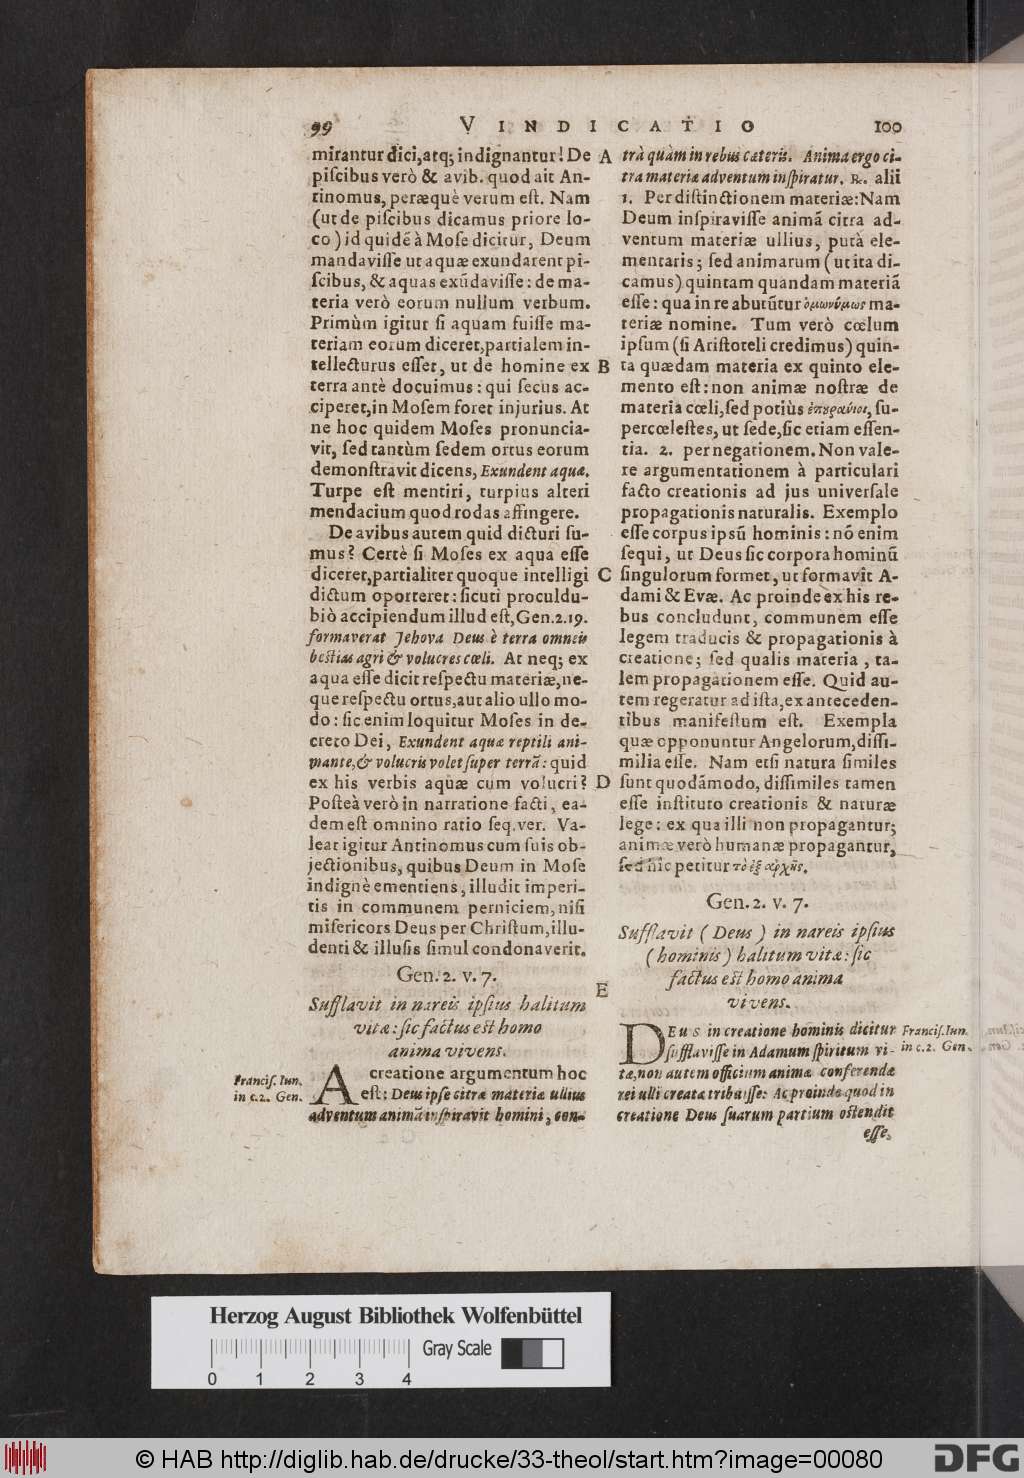 99
VINDICATIO
100
mirantur dici, atq; indignantur! De
piſcibus verò & avib. quod ait An-
tinomus, peræquè verum eſt. Nam
(ut de piſcibus dicamus priore lo-
co) id quidẽ à Moſe dicitur, Deum
mandaviſſe ut aquæ exundarent pi-
ſcibus, & aquas exũdaviſſe: de ma-
teria verò eorum nullum verbum.
Primùm igitur ſi aquam fuiſſe ma-
teriam eorum diceret, partialem in-
tellecturus eſſet, ut de homine ex
terra antè docuimus: qui ſecus ac-
ciperet, in Moſem foret injurius. At
ne hoc quidem Moſes pronuncia-
vit, ſed tantùm ſedem ortus eorum
demonſtravit dicens, Exundent aquæ.
Turpe eſt mentiri, turpius alteri
mendacium quod rodas affingere.
De avibus autem quid dicturi ſu-
mus? Certè ſi Moſes ex aqua eſſe
diceret, partialiter quoque intelligi
dictum oporteret: ſicuti proculdu-
biò accipiendum illud eſt, Gen.2.19.
formaverat Jehova Deus è terra omneis
beſtias agri & volucres cœli. At neq; ex
aqua eſſe dicit reſpectu materiæ, ne-
que reſpectu ortus, aut alio ullo mo-
do: ſic enim loquitur Moſes in de-
creto Dei, Exundent aquæ reptili ani-
mante, & volucris volet ſuper terrã: quid
ex his verbis aquæ cum volucri?
Poſteà verò in narratione facti, ea-
dem eſt omnino ratio ſeq. ver. Va-
leat igitur Antinomus cum ſuis ob-
jectionibus, quibus Deum in Moſe
indignè ementiens, illudit imperi-
tis in communem perniciem, niſi
miſericors Deus per Chriſtum, illu-
denti & illuſis ſimul condonaverit.
Gen. 2. v. 7.
Sufflavit in nareis ipſius halitum
vitæ: ſic factus eſt homo
anima vivens.
Franciſ. Iun.
in c.2. Gen.
A creatione argumentum hoc
eſt: Deus ipſe citra materiæ ullius
adventum animã inſpiravit homini, con-
A
B
C
D
E
trà quàm in rebus cæteris. Anima ergo ci-
tra materiæ adventum inſpiratur. ℞. alii
1. Per diſtinctionem materiæ: Nam
Deum inſpiraviſſe animã citra ad-
ventum materiæ ullius, putà ele-
mentaris; ſed animarum (ut ita di-
camus) quintam quandam materiã
eſſe: qua in re abutũtur ὁμωνύμως ma-
teriæ nomine. Tum verò cœlum
ipſum (ſi Ariſtoteli credimus) quin-
ta quædam materia ex quinto ele-
mento eſt: non animæ noſtræ de
materia cœli, ſed potiùs ἐπουράνιοι, ſu-
percœleſtes, ut ſede, ſic etiam eſſen-
tia. 2. per negationem. Non vale-
re argumentationem à particulari
facto creationis ad jus univerſale
propagationis naturalis. Exemplo
eſſe corpus ipsũ hominis: nõ enim
ſequi, ut Deus ſic corpora hominũ
ſingulorum formet, ut formavit A-
dami & Evæ. Ac proinde ex his re-
bus concludunt, communem eſſe
legem traducis & propagationis à
creatione; ſed qualis materia, ta-
lem propagationem eſſe. Quid au-
tem regeratur ad iſta, ex anteceden-
tibus manifeſtum eſt. Exempla
quæ opponuntur Angelorum, diſſi-
milia eſſe. Nam etſi natura ſimiles
ſunt quodãmodo, diſſimiles tamen
eſſe inſtituto creationis & naturæ
lege: ex qua illi non propagantur;
animæ verò humanæ propagantur,
ſed hîc petitur τὸ ἐξ ἀρχῆς.
Gen. 2. v. 7.
Sufflavit (Deus) in nareis ipſius
(hominis) halitum vitæ: ſic
factus eſt homo anima
vivens.
DEus in creatione hominis dicitur
ſufflaviſſe in Adamum ſpiritum vi-
tæ, non autem officium animæ conferendæ
rei ulli creatæ tribuiſſe: Ac proinde quod in
creatione Deus ſuarum partium oſtendit
eſſe,
Franciſ. Iun.
in c.2. Gen.
Herzog August Bibliothek Wolfenbüttel
Gray Scale
0 1 2 3 4
© HAB http://diglib.hab.de/drucke/33-theol/start.htm?image=00080
DFG